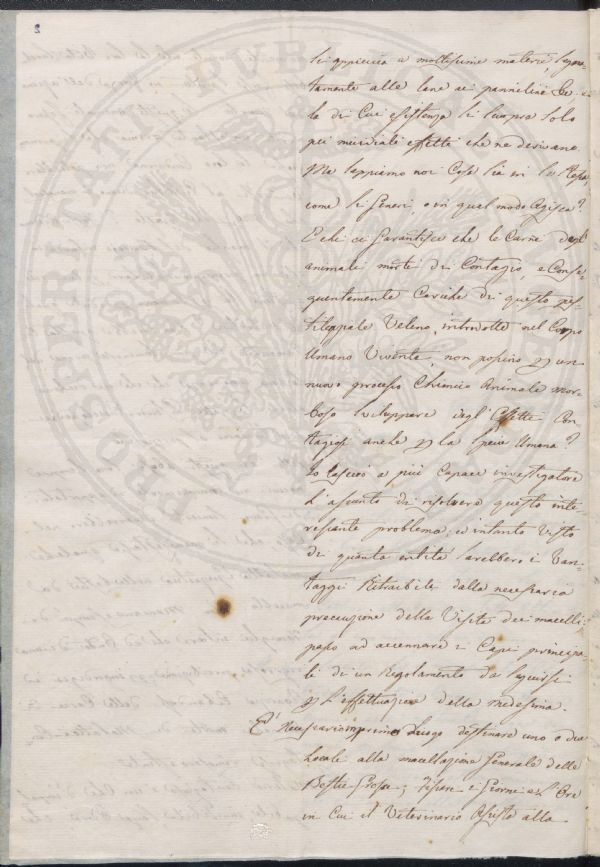 si appiccica a moltissime materie, segna-
tamente alle lane ai pannelini &c e
la di Cui esistenza si scuopre solo
pei micidiali effetti che ne derivano.
Ma sappiamo noi Cosa sia in se stessa,
come si Generi, o in qual modo Agisca?
E chi ci Garantisce che le Carni degl'
animali morti di Contagio, e Conse-
quentemente Cariche di questo pes-
tilenziale Veleno, introdotte nel Corpo
Umano Vivente, non possino p un
nuovo processo Chimico Animale mor-
boso sviluppare degl'Effetti Con-
tagiosi anche p la specie Umana?
Io lascierò a più Capace investigatore
l'assunto di risolvere questo inte-
ressante problema, ed intanto Visto
di quanta entità sarebbero i Van-
taggi Ritraibili dalla necessaria
precauzione della Visita dei macelli,
passo ad accennare i Capi principa-
li di un Regolamento da seguirsi
p l'effettuazione della medesima.
E' Necessario in primo Luogo destinare uno o due
Locali alla macellazione Generale delle
Bestie Grosse; fissare i Giorni e l'Ore
in Cui il Veterinario Assista alla
PRO VERITATE PVBLICAE
2